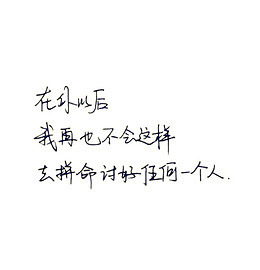 在补以后
我再也不会这样
去拼命讨好任何一个人.